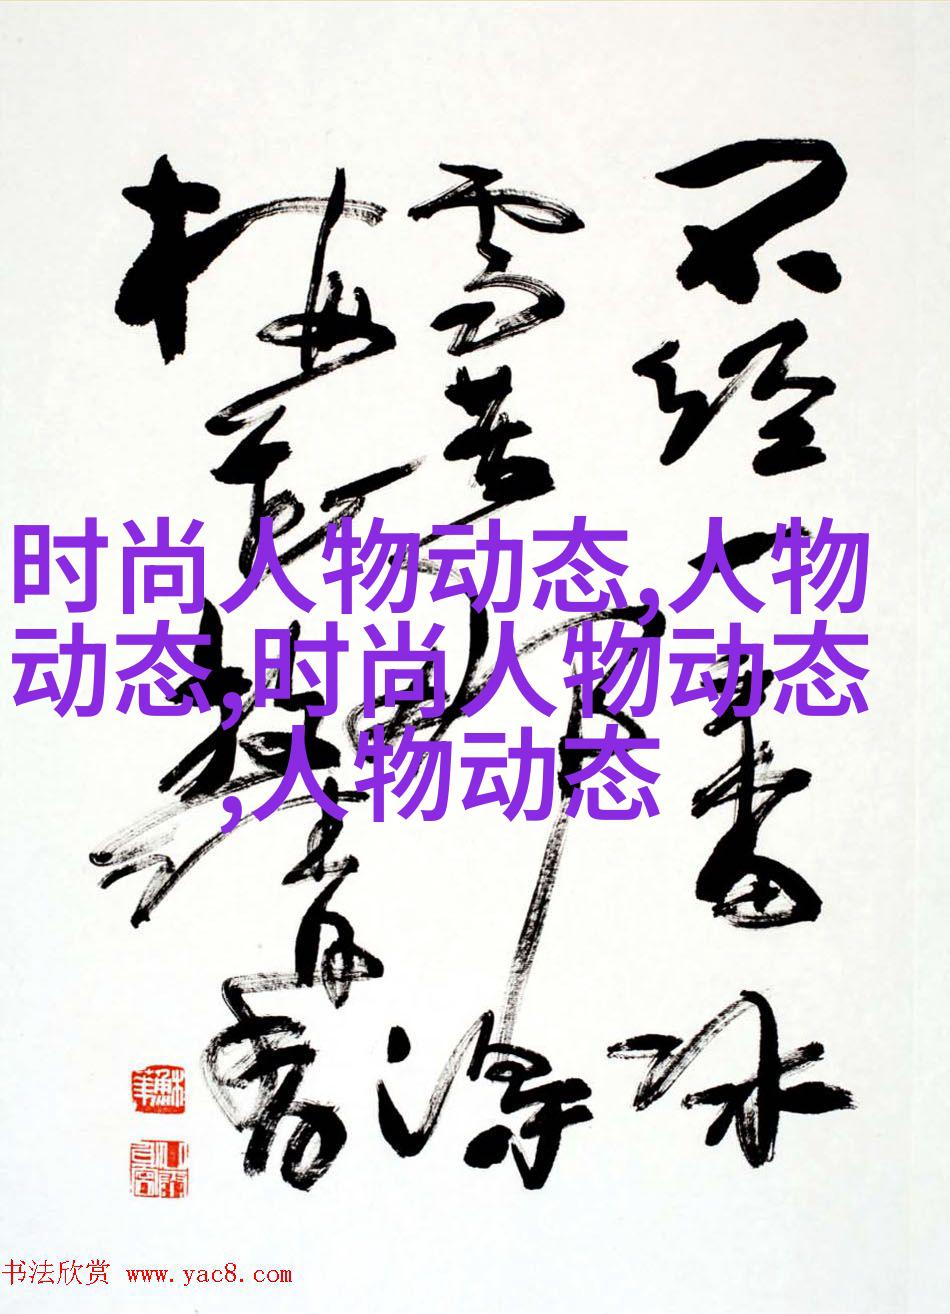 不经一番冰
雪苦得
梅花清香
时尚人物动态,人物
动态,时尚人物动态
,人物动态
书法欣赏 www.yac8.com